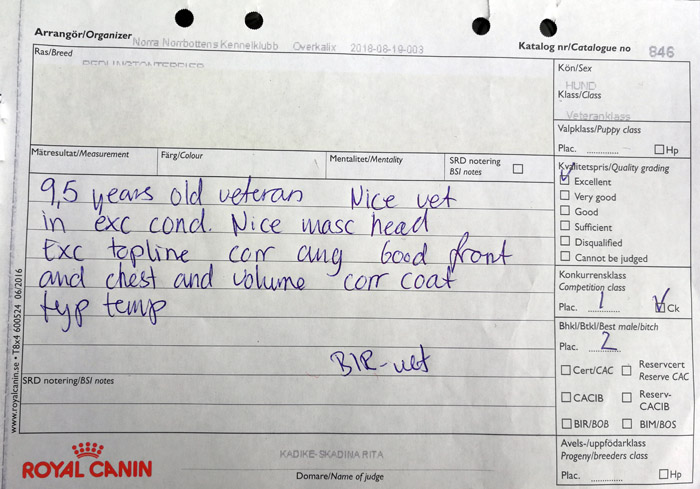 Arrangör/Organizer Norra Norrbottens Kennelklubb Överkalix 2018-08-19-003
Katalog nr/Catalogue no 846
Ras/Breed
Kön/Sex
HUND
Klass/Class
Veteranklass
Valpklass/Puppy class
Plac. .......... Hp
Mätresultat/Measurement Färg/Colour Mentalitet/Mentality SRD notering
BSI notes
9,5 years old veteran Nice vet
in exc cond. Nice masc head
Exc topline corr ang Good front
and chest and volume corr coat
typ temp
BIR-vet
Kvalitetspris/Quality grading
Excellent
Very good
Good
Sufficient
Disqualified
Cannot be judged
Konkurrensklass
Competition class
Plac. 1 Ck
Bhkl/Btkl/Best male/bitch
Plac. 2
Cert/CAC Reservcert
Reserve CAC
CACIB Reserv-
CACIB
BIR/BOB BIM/BOS
SRD notering/BSI notes
www.royalcanin.se • T8x4 600524 06/2016
ROYAL CANIN
KADIKE-SKADINA RITA
Domare/Name of judge
Avels-/uppfödarklass
Progeny/breeders class
Plac. .......... Hp